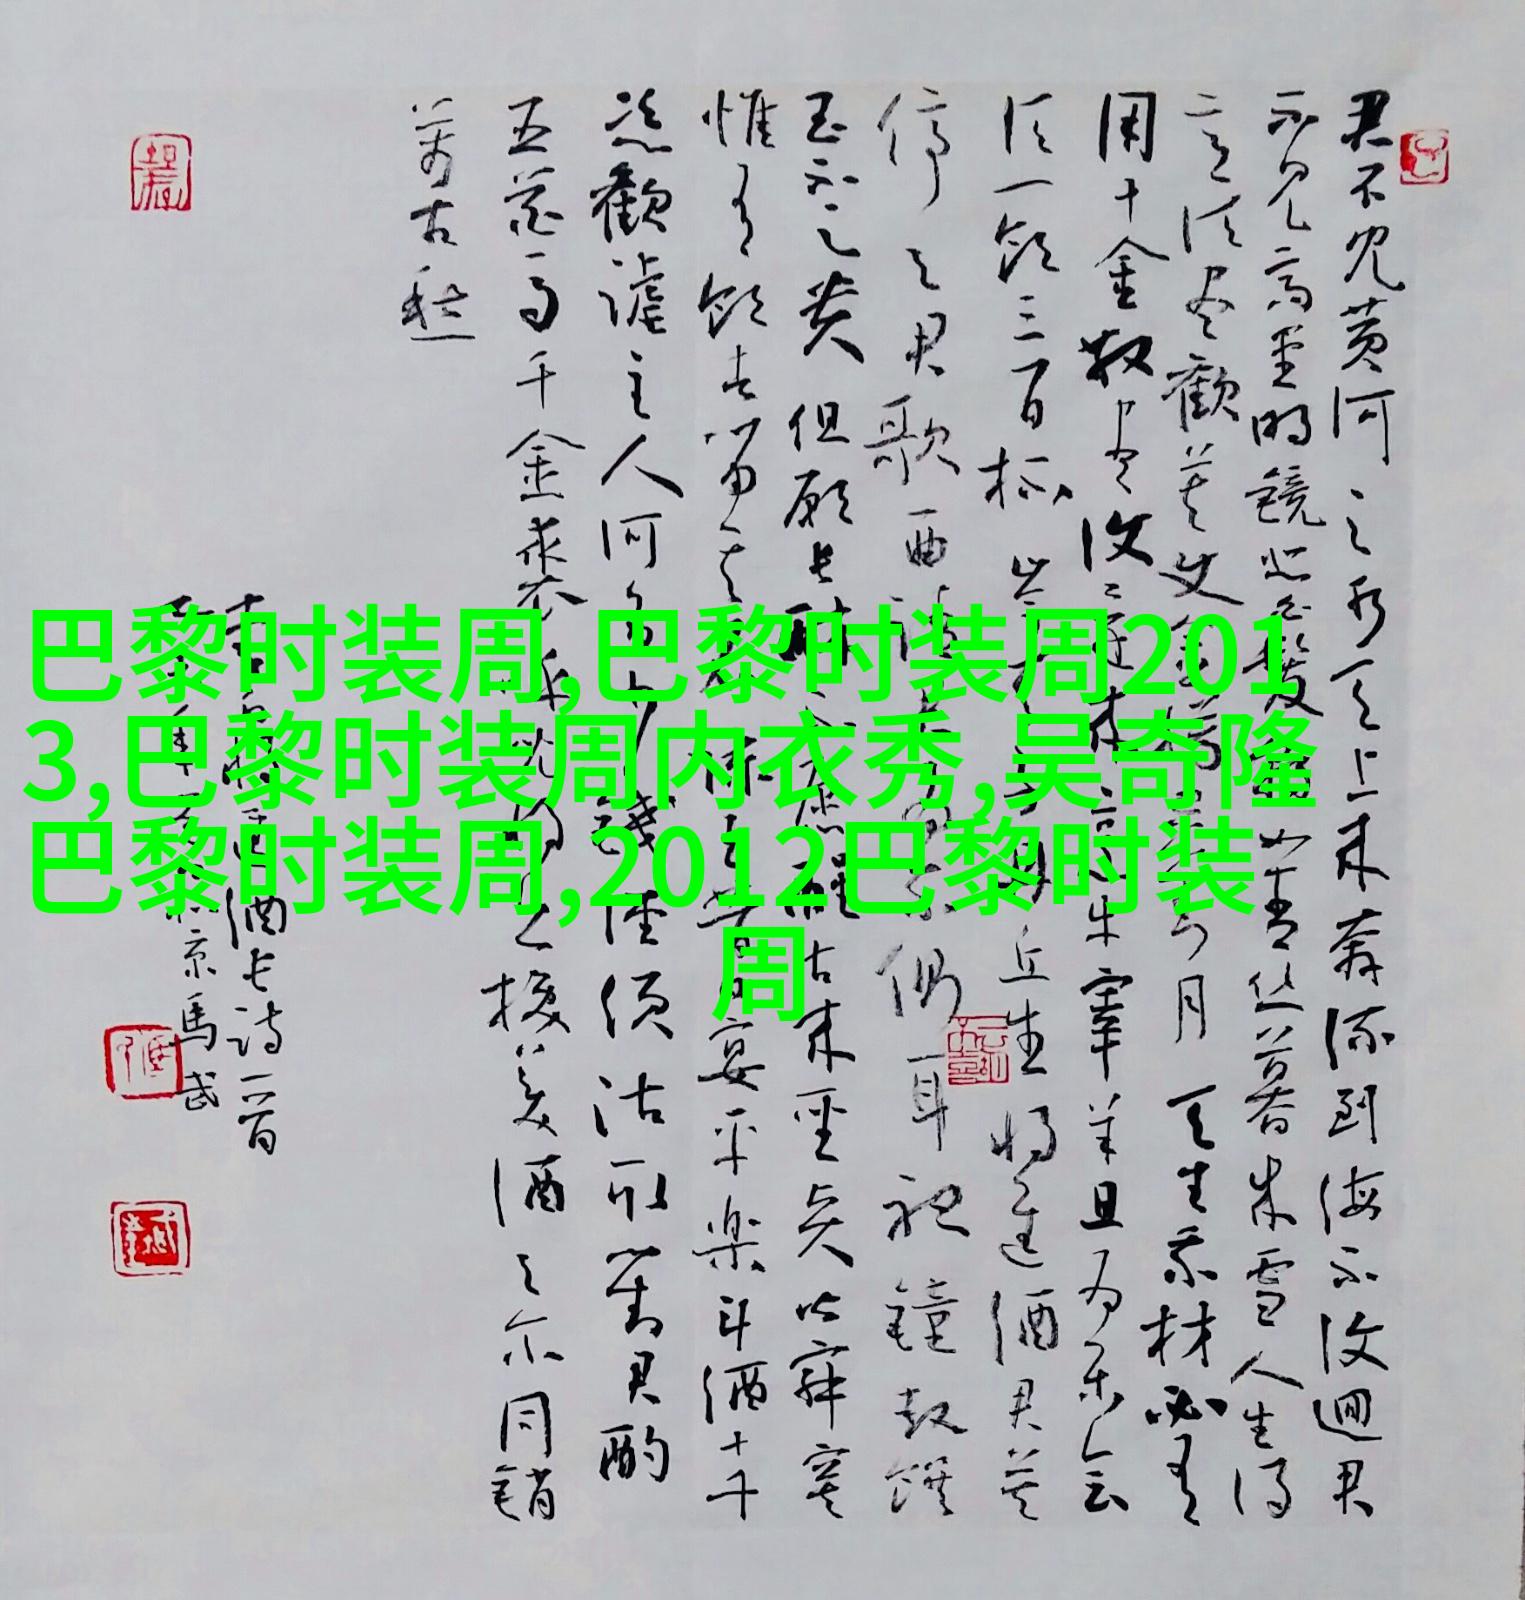 君不见黄河之水天上来奔流到海不复迴君
不见高堂明镜悲白发朝如青丝暮成雪人生得
意须尽歡莫使金樽空对月天生我材必有
用千金散尽还复来烹羊宰牛且为乐会
须一饮三百杯岑夫子丹丘生将进酒君莫
停与君歌一曲请君为我倾耳听鐘鼓馔
玉不足贵但愿长醉不愿醒古来圣贤皆寂寞
惟有饮者留其名陈王昔时宴平樂斗酒十千
恣歡谑主人何为言少錢径须沽取对君酌
五花马千金裘呼儿将出换美酒与尔同销
萬古愁
巴黎时装周,巴黎时装周201
3,巴黎时装周内衣秀,吴奇隆
巴黎时装周,2012巴黎时装
周